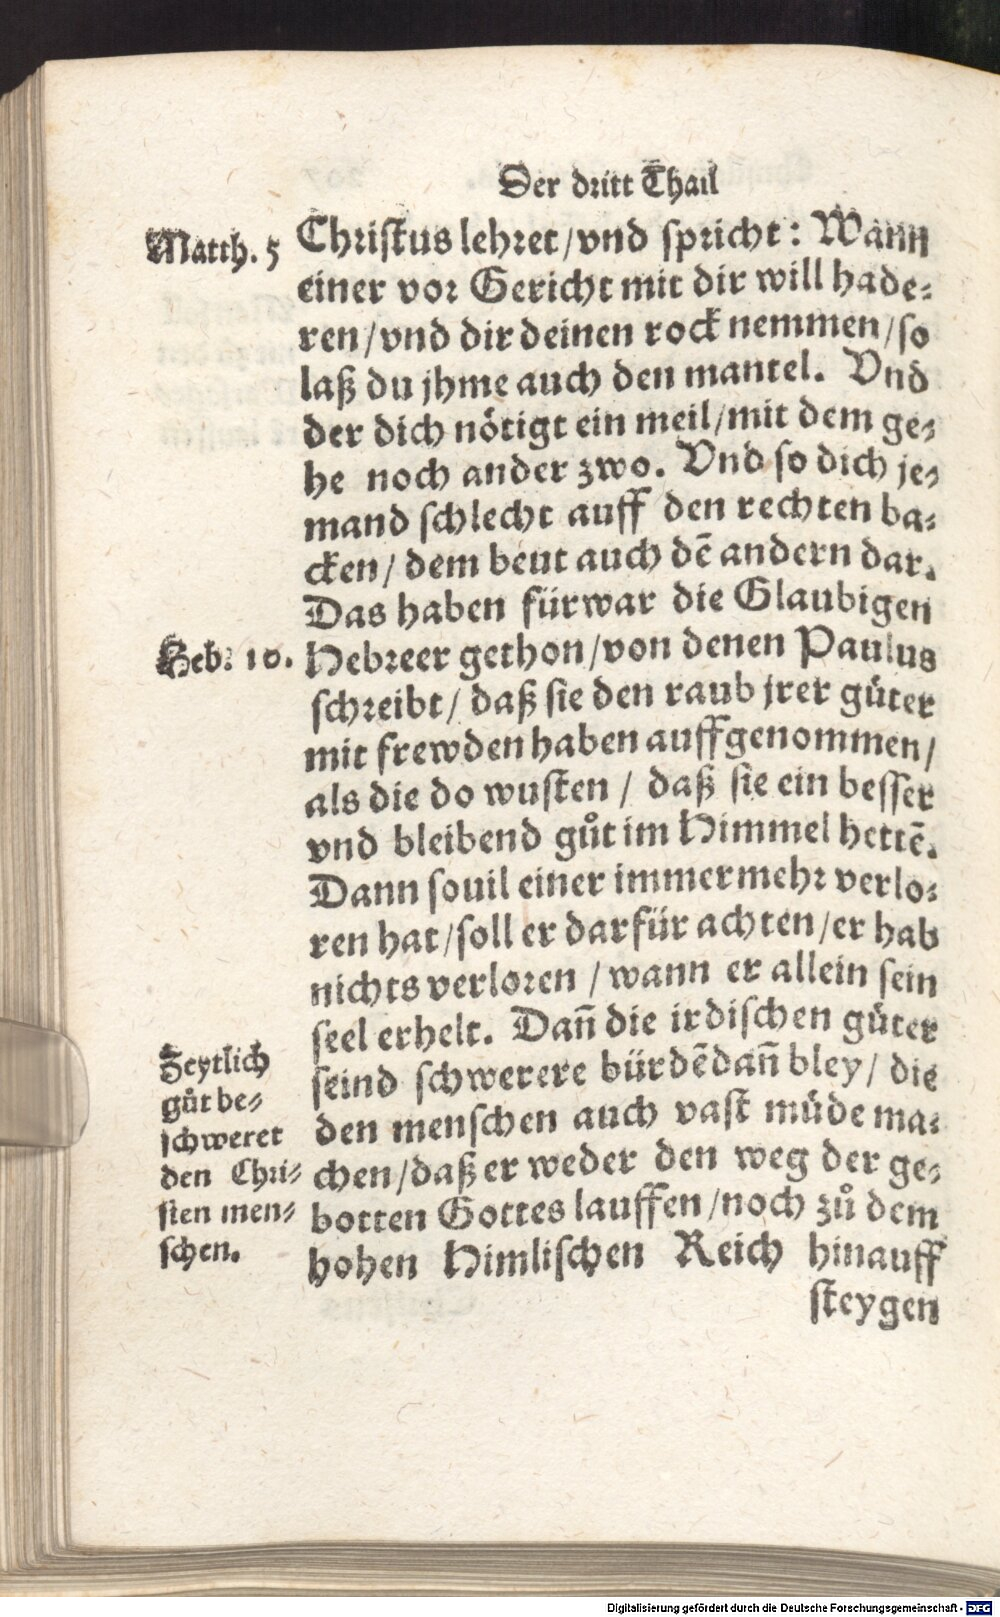 Der dritt Thail
Matth. 5
Christus lehret / vnd spricht : Wann
einer vor Gericht mit dir will hade⸗
ren / vnd dir deinen rock nemmen / so
laß du jhme auch den mantel. Vnd
der dich nötigt ein meil / mit dem ge⸗
he noch ander zwo. Vnd so dich je⸗
mand schlecht auff den rechten ba⸗
cken / dem beut auch dē andern dar.
Das haben fürwar die Glaubigen
Heb. 10.
Hebreer gethon / von denen Paulus
schreibt / daß sie den raub jrer güter
mit frewden haben auffgenommen /
als die do wusten / daß sie ein besser
vnd bleibend gůt im Himmel hettē.
Dann souil einer immermehr verlo⸗
ren hat / soll er darfür achten / er hab
nichts verloren / wann er allein sein
seel erhelt. Dañ die irdischen güter
seind schwerere bürdē dañ bley / die
den menschen auch vast müde ma⸗
chen / daß er weder den weg der ge⸗
botten Gottes lauffen / noch zů dem
hohen Himlischen Reich hinauff
steygen
Zeytlich
gůt be⸗
schweret
den Chri⸗
sten men⸗
schen.
Digitalisierung gefördert durch die Deutsche Forschungsgemeinschaft - DFG